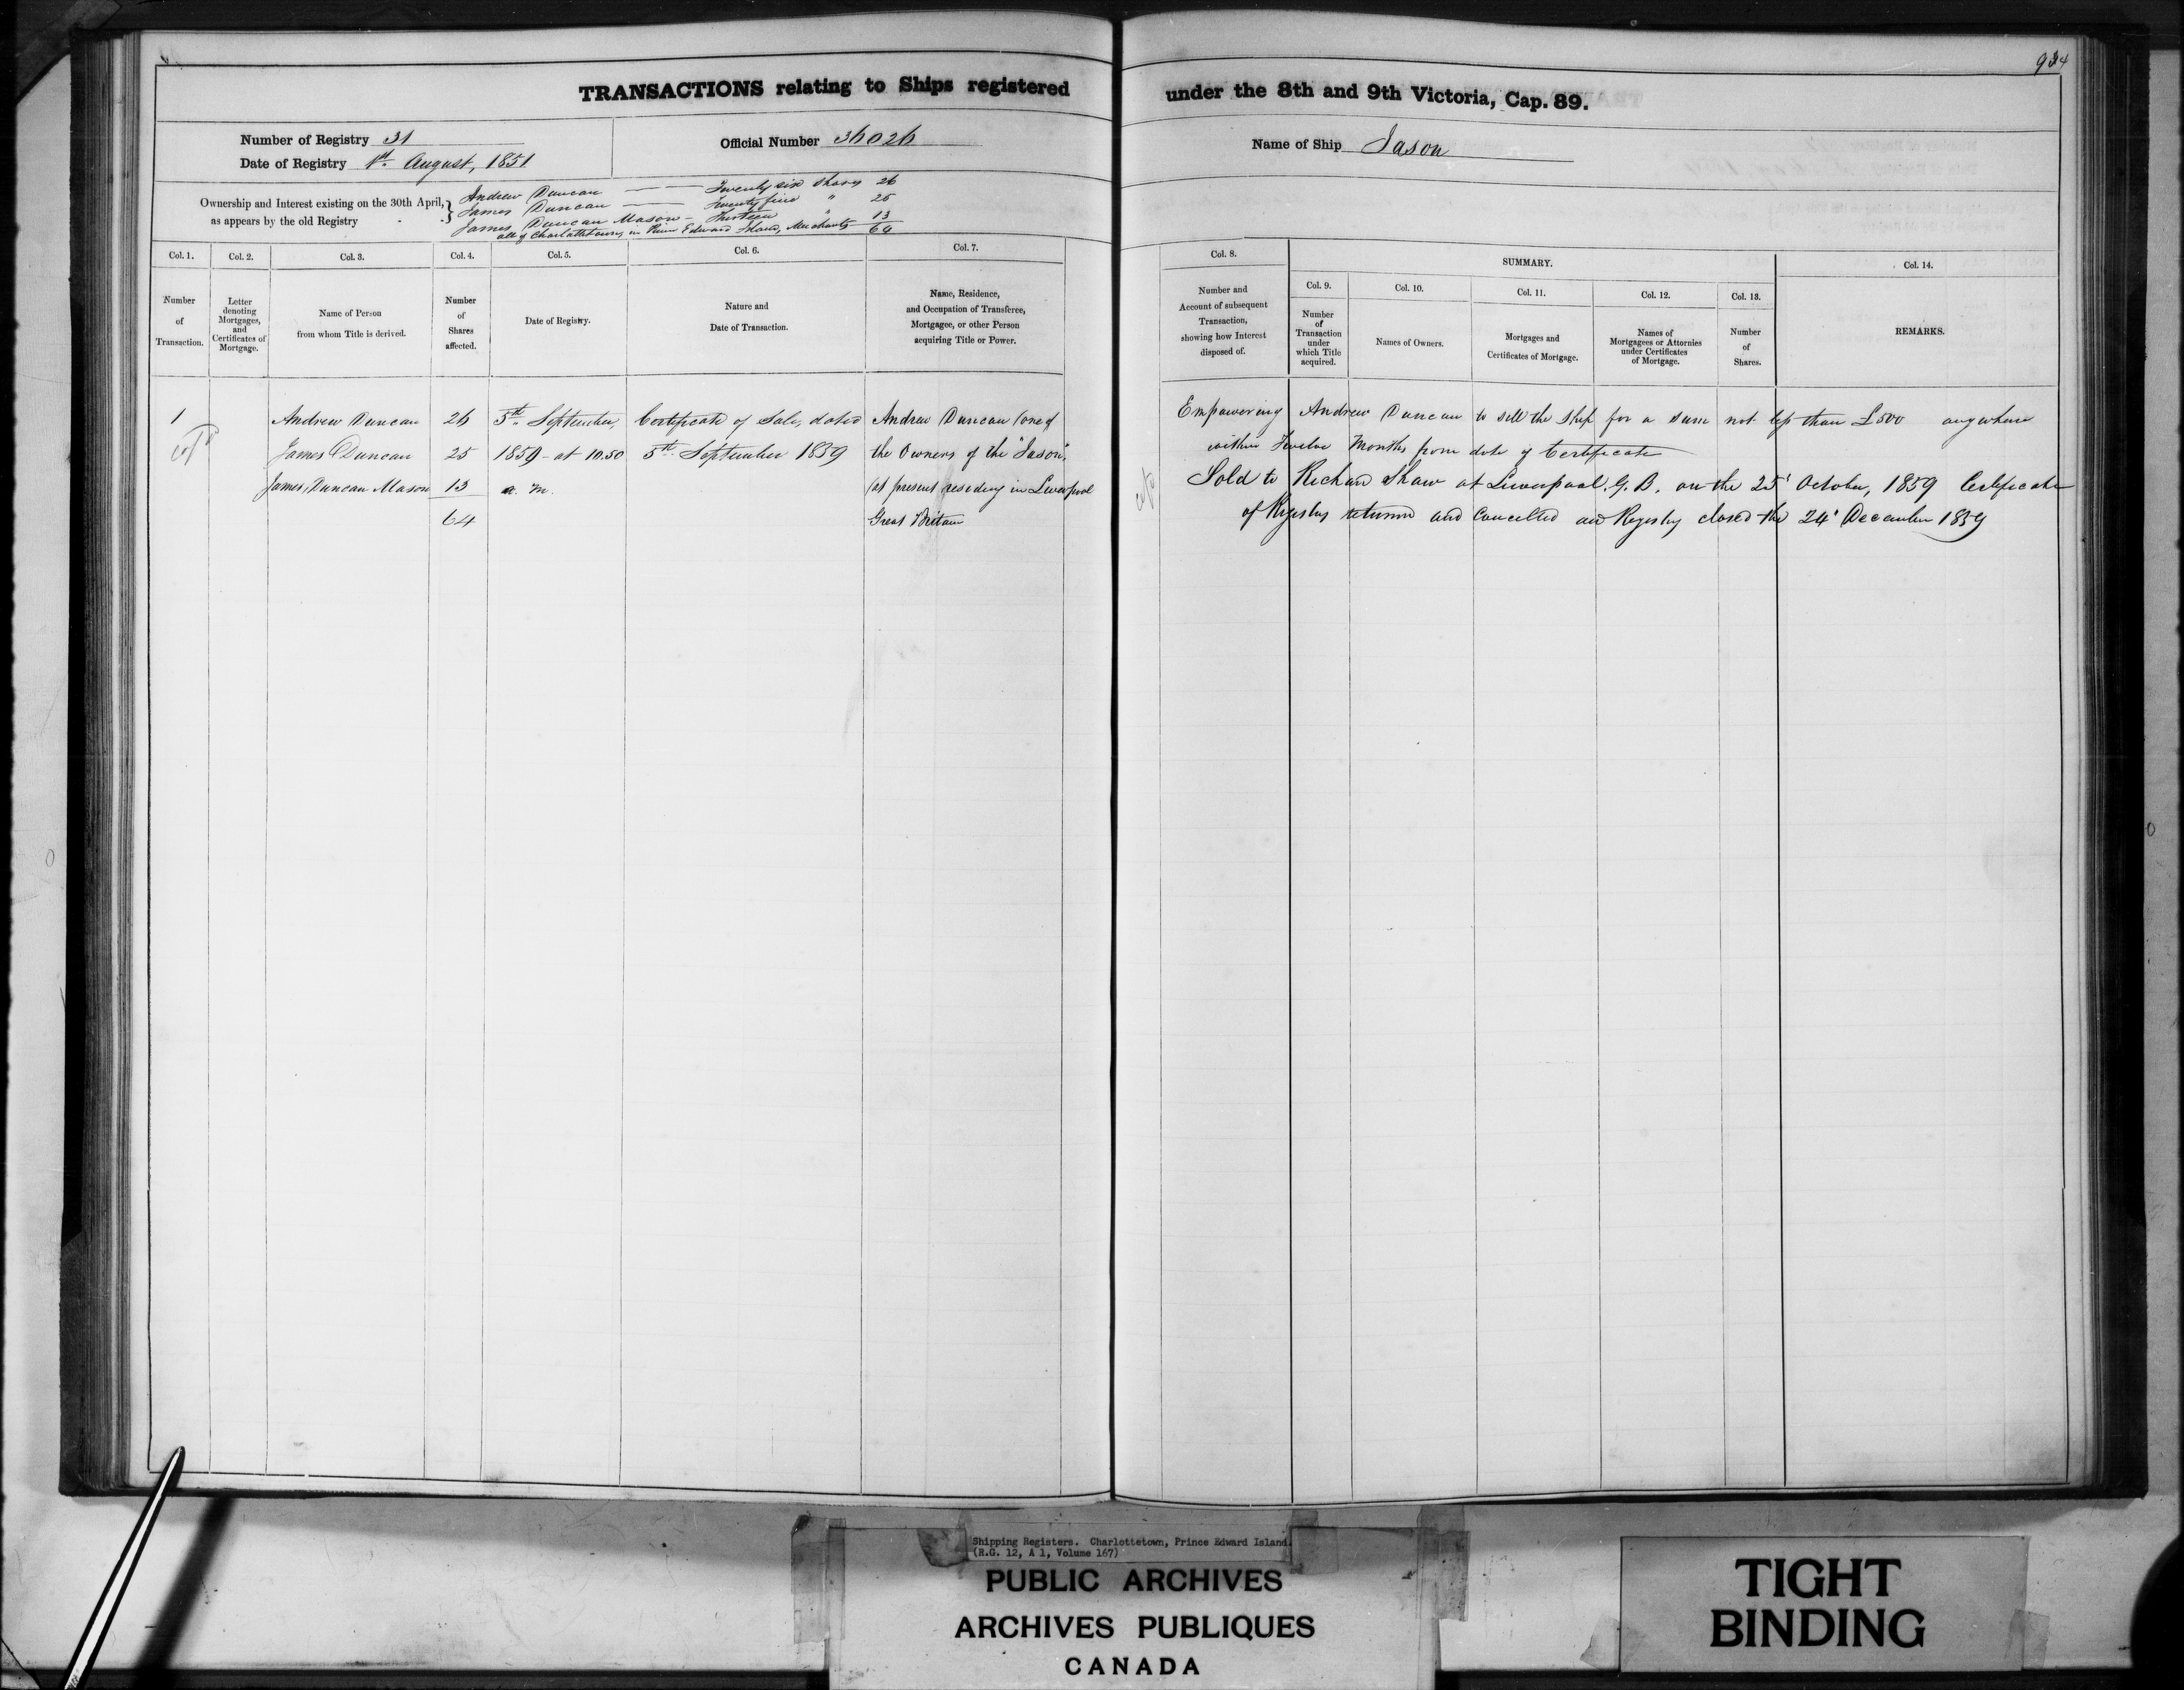 934
TRANSACTIONS relating to Ships registered under the 8th and 9th Victoria, Cap. 89.
Number of Registry 31
Official Number 36026
Name of Ship Jason
Date of Registry 1st. August, 1851
Ownership and Interest existing on the 30th April, as appears by the old Registry
Andrew Duncan — — Twenty six Shares 26
James Duncan — Twenty five " 25
James Duncan Mason - Thirteen " 13
all of Charlottetown, in Prince Edward Island, Merchants 64
Col. 1.
Number of Transaction.
Col. 2.
Letter denoting Mortgages, and Certificates of Mortgage.
Col. 3.
Name of Person from whom Title is derived.
Col. 4.
Number of Shares affected.
Col. 5.
Date of Registry.
Col. 6.
Nature and Date of Transaction.
Col. 7.
Name, Residence, and Occupation of Transferee, Mortgagee, or other Person acquiring Title or Power.
Col. 8.
Number and Account of subsequent Transaction, showing how Interest disposed of.
SUMMARY.
Col. 9.
Number of Transaction under which Title acquired.
Col. 10.
Names of Owners.
Col. 11.
Mortgages and Certificates of Mortgage.
Col. 12.
Names of Mortgagees or Attornies under Certificates of Mortgage.
Col. 13.
Number of Shares.
Col. 14.
REMARKS.
1 Andrew Duncan 26 5th September, Certificate of Sale, dated Andrew Duncan (one of
James Duncan 25 1859 - at 10.50 5th September 1859 the Owners of the "Jason",
James Duncan Mason 13 a. m. (at present residing in Liverpool
64 Great Britain
Empowering Andrew Duncan to sell the Ship for a sum not less than £500 anywhere
within Twelve Months from date of Certificate
Sold to Richard Shaw at Liverpool. G. B. on the 25' October, 1859 Certificate
of Registry returned and Cancelled and Registry closed the 24' December 1859
Shipping Registers. Charlottetown, Prince Edward Island.
(R.G. 12, A 1, Volume 167)
PUBLIC ARCHIVES
ARCHIVES PUBLIQUES
CANADA
TIGHT
BINDING